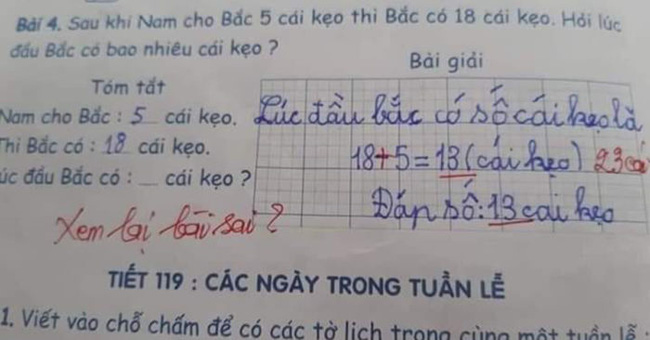 Bài 4. Sau khi Nam cho Bắc 5 cái kẹo thì Bắc có 18 cái kẹo. Hỏi lúc
đầu Bắc có bao nhiêu cái kẹo ?
Bài giải
Tóm tắt
Nam cho Bắc : 5 cái kẹo.
Thì Bắc có : 18 cái kẹo.
úc đầu Bắc có : __ cái kẹo ?
Lúc đầu bắc có số cái kẹo là
18+5=13 (cái kẹo) 23 cá
Đáp số: 13 cai kẹo
Xem lại bài sai ?
TIẾT 119 : CÁC NGÀY TRONG TUẦN LỄ
1. Viết vào chỗ chấm để có các tờ lịch trong cùng một tuần lễ :